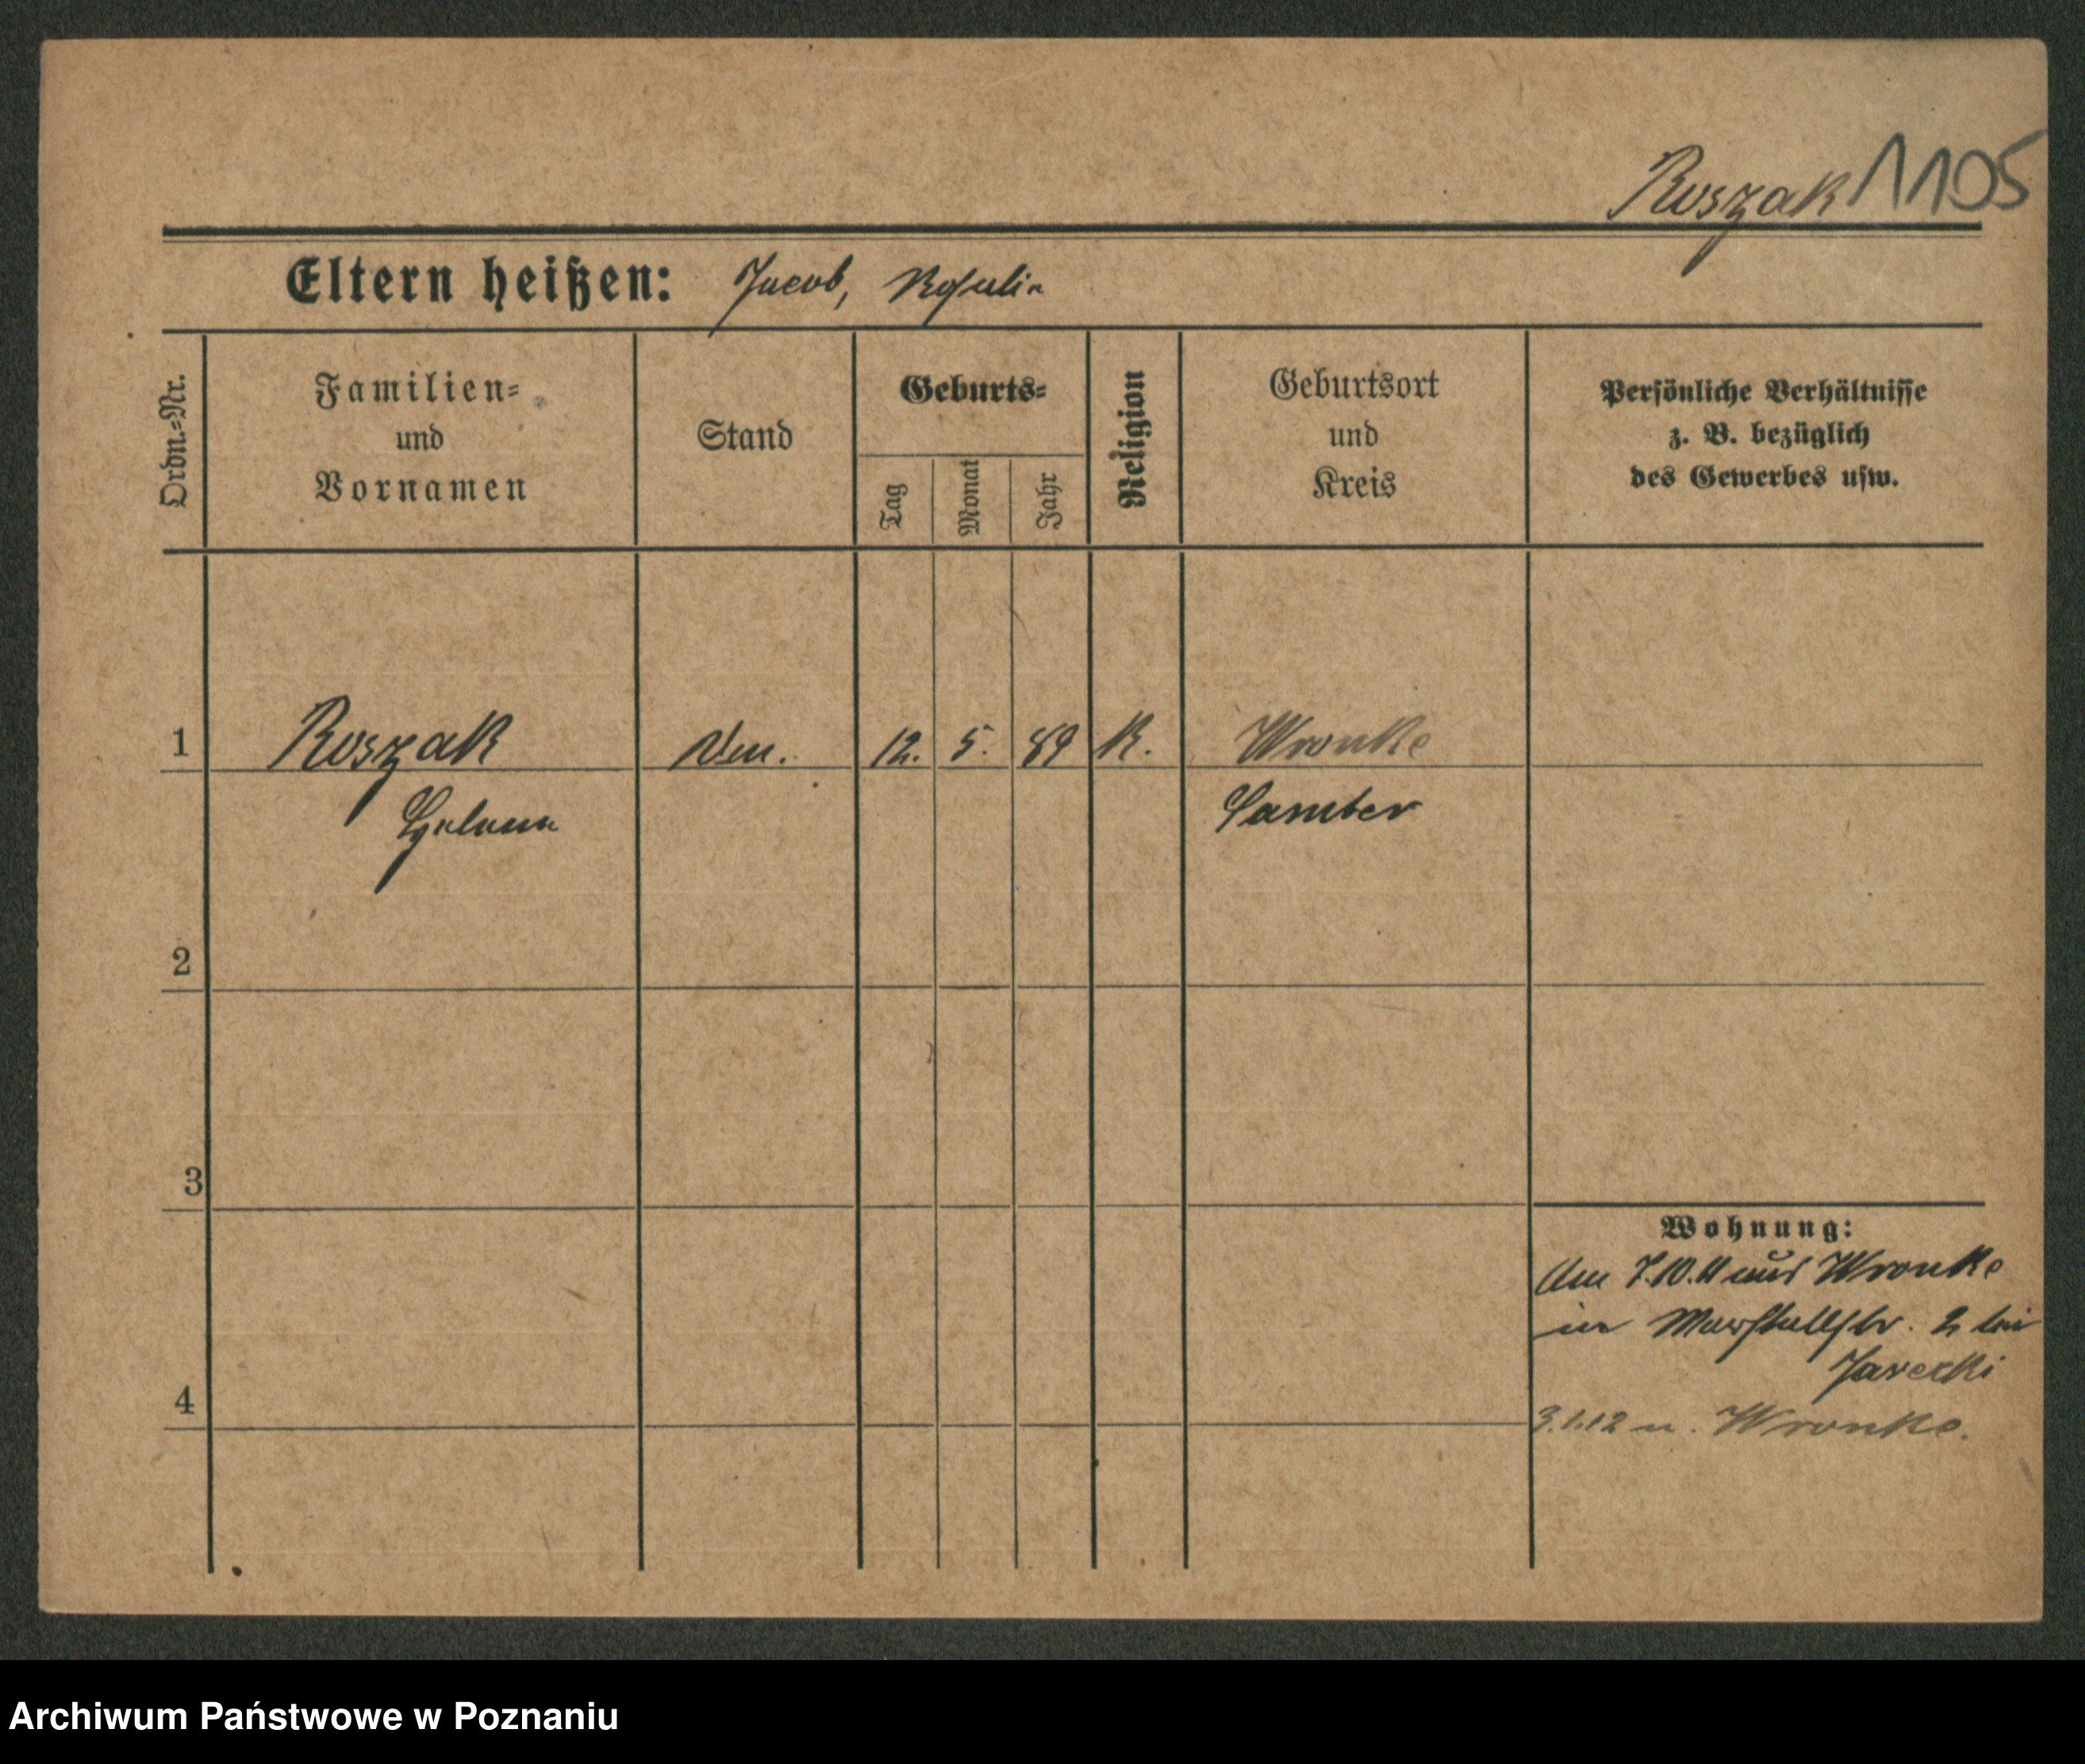 Roszak 1105
Eltern heißen: Jacob, Rosalia
Ordn.-Nr.
Familien-
und
Vornamen
Stand
Geburts-
Tag
Monat
Jahr
Religion
Geburtsort
und
Kreis
Persönliche Verhältnisse
z. B. bezüglich
des Gewerbes usw.
1 Roszak 12. 5. 89 K. Wronke
Helena Samter
2
3
Wohnung:
Am 7.10.11 aus Wronke
in Marstallstr. 2 bei
4
3.1.12 n. Wronke.
Archiwum Państwowe w Poznaniu